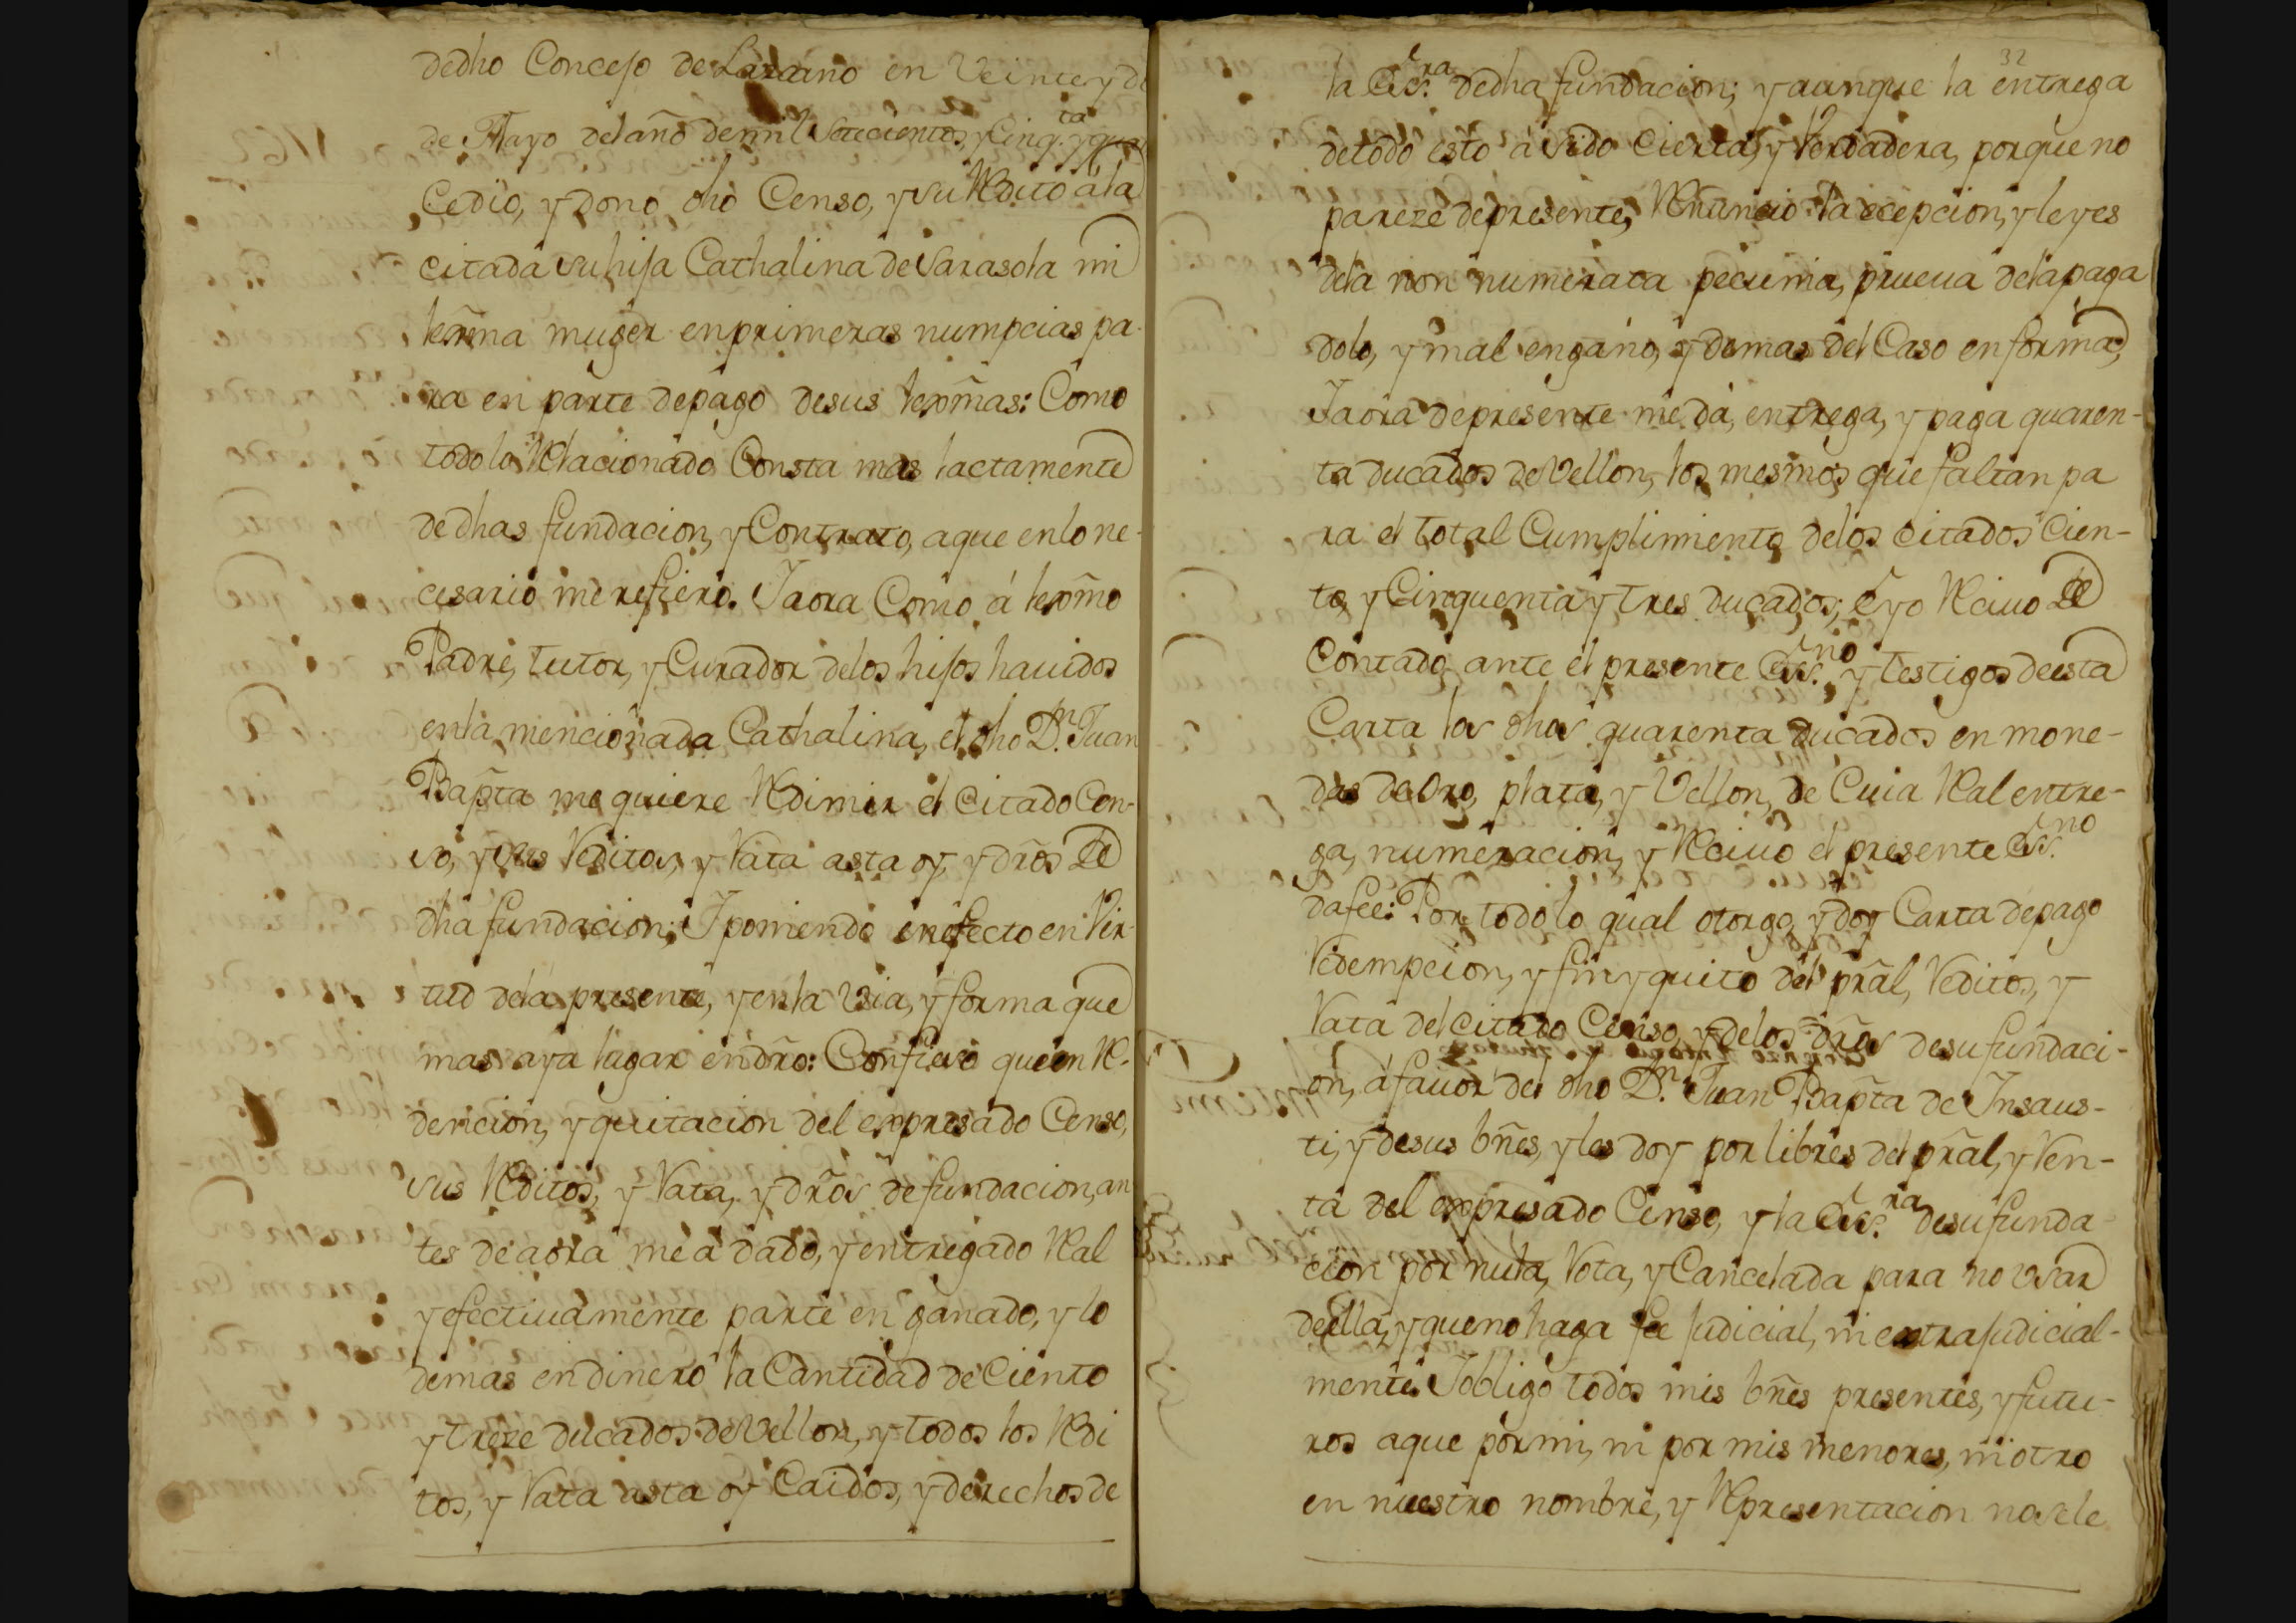 dedho Concejo de Lazcano en Veinte y d
de Mayo del año de mil Setecientos, y Cinq.ta y qua
Cedio, y dono dho Censo, y su Redito á la
citada su hija Cathalina de Sarasola mi
lexma muger en primeras numpcias pa-
ra en parte de pago de sus lexmas: Como
todo lo Relacionado Consta mas lactamente
de dhas fundacion, y Contrato, a que en lo ne-
cesario me refiero. Iaora Como á lexmo
Padre, tutor, y Curador de los hijos hauidos
en la mencionada Cathalina, el dho D.n Juan
Bapta me quiere Redimir el citado Cen-
so, y sus Reditos, y Rata asta oy, y dros de
dha fundacion; I poniendo en efecto en Vir-
tud de la presente, y en la Via, y forma que
mas aya lugar en dro: Confieso que en Re-
dencion, y quitacion del expresado Censo,
sus Reditos, y Rata, y dros de fundacion, an
tes de aora me á dado, y entregado Real
y efectiuamente parte en ganado, y lo
demas en dinero la Cantidad de Ciento
y treze ducados de Vellon, y todos los Redi
tos, y Rata asta oy Caidos, y derechos de
32
la Ess.ra dedha fundacion; y aunque la entrega
de todo esto á sido Cierta, y Verdadera, porque no
pareze de presente, Renuncio la ecepcion, y leyes
dela non numerata pecunia, prueua dela paga
dolo, y mal engano, y demas del Caso en forma,
Iaora de presente me da, entrega, y paga quaren-
ta ducados de Vellon, los mesmos que faltan pa
ra el total Cumplimiento delos citados Cien-
to, y Cinquenta y tres ducados; é yo Reciuo de
Contado ante el presente Ess.no y testigos de esta
Carta los dhos quarenta ducados en mone-
das de Oro, plata, y Vellon, de Cuia Real entre-
ga, numeracion, y Reciuo el presente Ess.no
da fee: Por todo lo qual otorgo, y doy Carta de pago
Redempcion, y fin y quito del pral, Reditos, y
Rata del citado Censo, y delos dros de su fundaci-
on, á fauor del dho D.n Juan Bapta de Insaus-
ti, y de sus bnes, y les doy por libres del pral, y Ren-
ta del expresado Censo, y la Ess.ra de su funda-
cion por nula, Rota, y Cancelada para no vsar
de ella, y que no haga fee Judicial, ni extrajudicial-
mente. I obligo todos mis bnes presentes, y futu-
ros a que por mi, ni por mis menores, ni otro
en nuestro nombre, y Representacion no se le